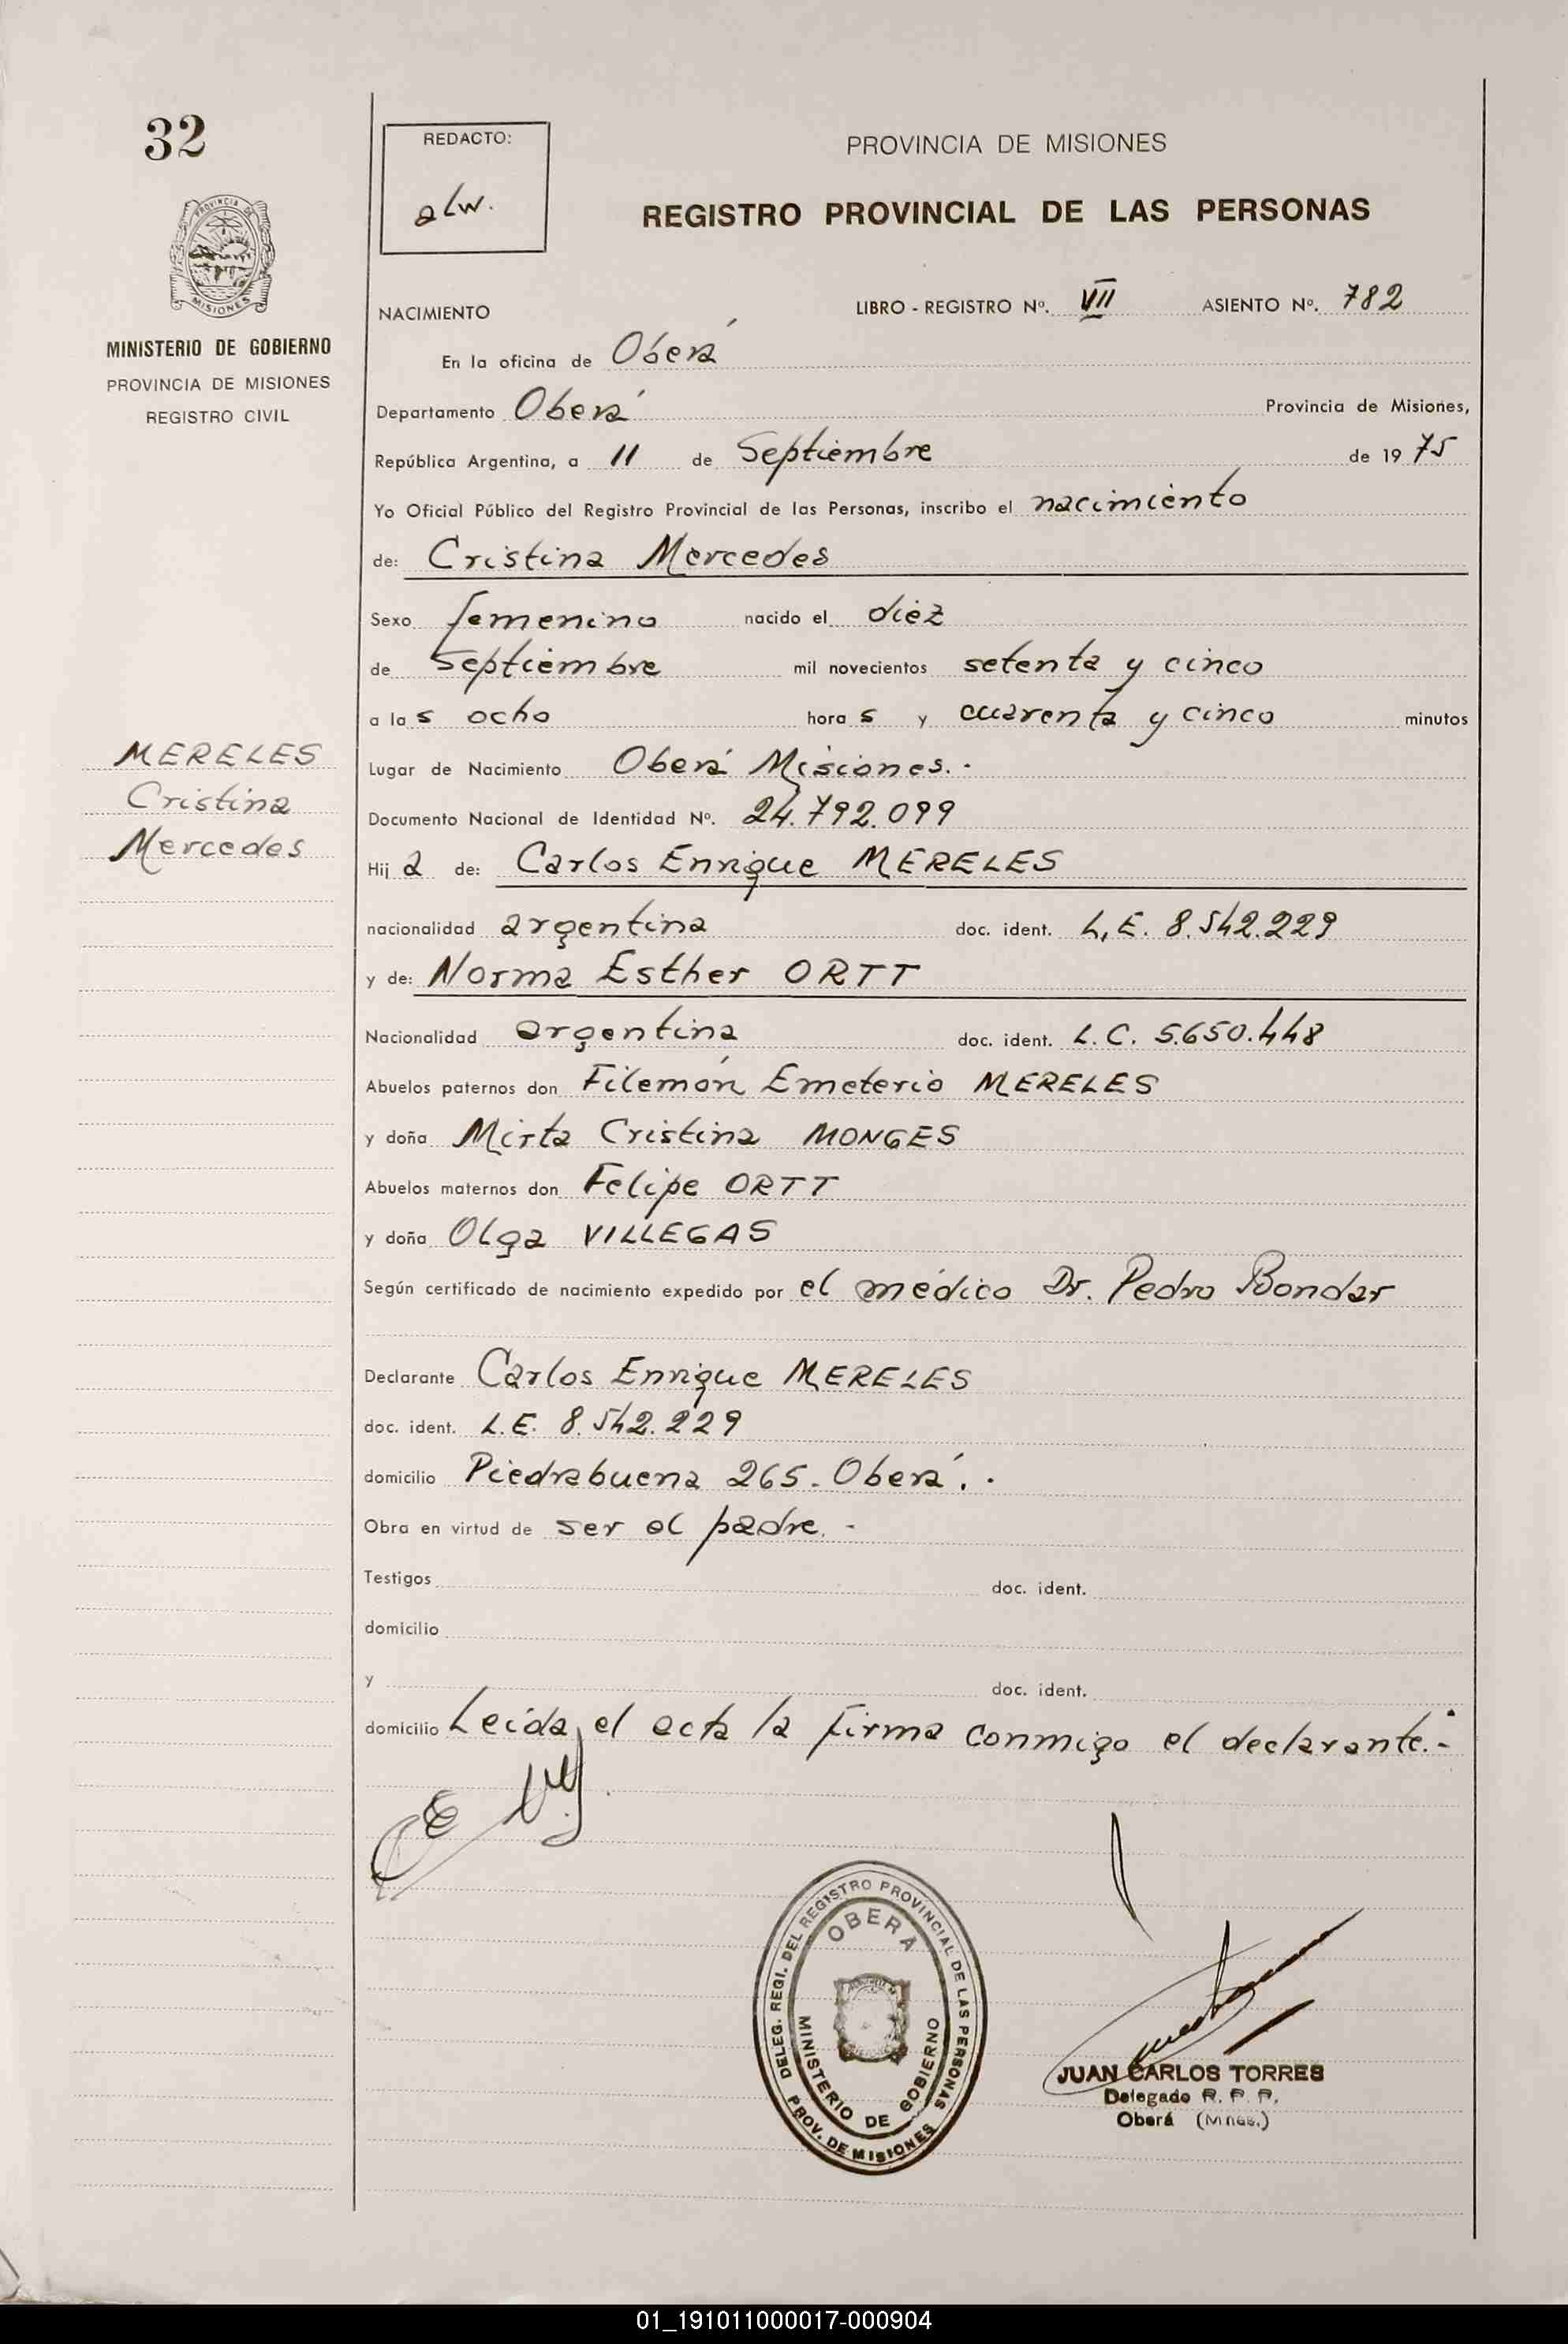 32
REDACTO:
alw.
PROVINCIA DE MISIONES
REGISTRO PROVINCIAL DE LAS PERSONAS
PROVINCIA DE
MISIONES
MINISTERIO DE GOBIERNO
PROVINCIA DE MISIONES
REGISTRO CIVIL
NACIMIENTO LIBRO - REGISTRO Nº. VII ASIENTO Nº. 782
En la oficina de Oberá
Departamento Oberá Provincia de Misiones,
República Argentina, a 11 de Septiembre de 1975
Yo Oficial Público del Registro Provincial de las Personas, inscribo el nacimiento
de: Cristina Mercedes
Sexo femenino nacido el diez
de Septiembre mil novecientos setenta y cinco
a las ocho horas y cuarenta y cinco minutos
MERELES
Cristina
Mercedes
Lugar de Nacimiento Oberá Misiones.-
Documento Nacional de Identidad Nº. 24.792.099
Hija de: Carlos Enrique MERELES
nacionalidad argentina doc. ident. L.E. 8.542.229
y de: Norma Esther ORTT
Nacionalidad argentina doc. ident. L.C. 5.650.448
Abuelos paternos don Filemón Emeterio MERELES
y doña Mirta Cristina MONGES
Abuelos maternos don Felipe ORTT
y doña Olga VILLEGAS
Según certificado de nacimiento expedido por el médico Dr. Pedro Bondar
Declarante Carlos Enrique MERELES
doc. ident. L.E. 8.542.229
domicilio Piedrabuena 265. Oberá.-
Obra en virtud de ser el padre.-
Testigos doc. ident.
domicilio
y doc. ident.
domicilio Leída el acta la firma conmigo el declarante.-
DELEG. REGI. DEL REGISTRO PROVINCIAL DE LAS PERSONAS
OBERÁ
MINISTERIO DE GOBIERNO
PROV. DE MISIONES
JUAN CARLOS TORRES
Delegado R. P. P.
Oberá (Mnes.)
01_191011000017-000904